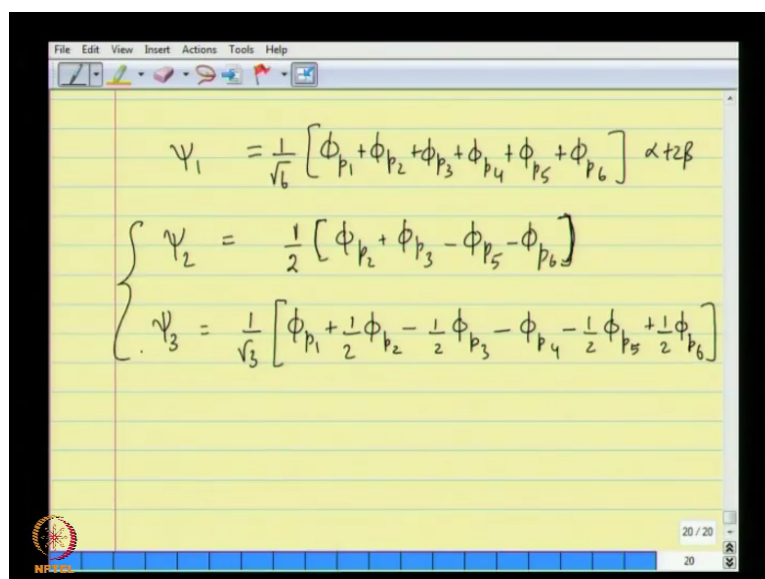 File Edit View Insert Actions Tools Help
ψ₁ = 1/√6 [ϕp₁ + ϕp₂ + ϕp₃ + ϕp₄ + ϕp₅ + ϕp₆] α+2β
ψ₂ = 1/2 [ϕp₂ + ϕp₃ - ϕp₅ - ϕp₆]
ψ₃ = 1/√3 [ϕp₁ + 1/2 ϕp₂ - 1/2 ϕp₃ - ϕp₄ - 1/2 ϕp₅ + 1/2 ϕp₆]
20 / 20
20
NPTEL